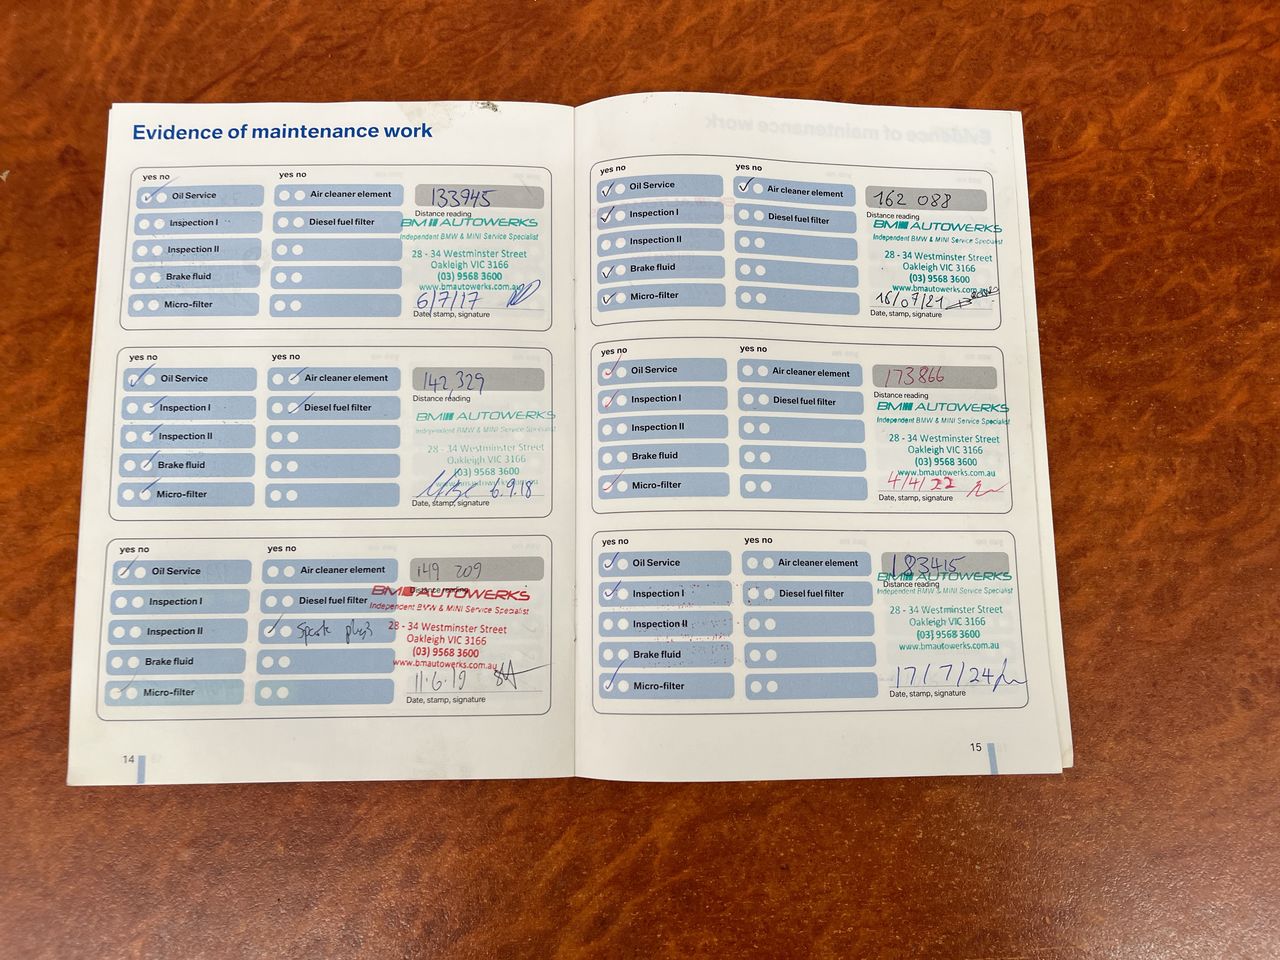 Evidence of maintenance work
yes no
yes no
Oil Service
Air cleaner element
133945
Inspection I
Diesel fuel filter
BM AUTOWERKS
Independent BMW & MINI Service Specialist
Inspection II
28 - 34 Westminster Street
Oakleigh VIC 3166
Brake fluid
(03) 9568 3600
www.bmautowerks.com.au
Micro-filter
6/7/17
Date, stamp, signature
yes no
yes no
Oil Service
Air cleaner element
142,329
Distance reading
Inspection I
Diesel fuel filter
BM AUTOWERKS
Independent BMW & MINI Service Specialist
Inspection II
28 - 34 Westminster Street
Oakleigh VIC 3166
Brake fluid
(03) 9568 3600
www.bmautowerks.com.au
Micro-filter
6.9.18
Date, stamp, signature
yes no
yes no
Oil Service
Air cleaner element
149 209
Distance reading
Inspection I
Diesel fuel filter
BM AUTOWERKS
Independent BMW & MINI Service Specialist
Inspection II
Spark plugs
28 - 34 Westminster Street
Oakleigh VIC 3166
Brake fluid
(03) 9568 3600
www.bmautowerks.com.au
Micro-filter
11.6.19
Date, stamp, signature
14
yes no
yes no
Oil Service
Air cleaner element
162 088
Distance reading
Inspection I
Diesel fuel filter
BM AUTOWERKS
Independent BMW & MINI Service Specialist
Inspection II
28 - 34 Westminster Street
Oakleigh VIC 3166
Brake fluid
(03) 9568 3600
www.bmautowerks.com.au
Micro-filter
16/07/21
Date, stamp, signature
yes no
yes no
Oil Service
Air cleaner element
173866
Distance reading
Inspection I
Diesel fuel filter
BM AUTOWERKS
Independent BMW & MINI Service Specialist
Inspection II
28 - 34 Westminster Street
Oakleigh VIC 3166
Brake fluid
(03) 9568 3600
www.bmautowerks.com.au
Micro-filter
4/4/22
Date, stamp, signature
yes no
yes no
Oil Service
Air cleaner element
183415
Distance reading
Inspection I
Diesel fuel filter
BM AUTOWERKS
Independent BMW & MINI Service Specialist
Inspection II
28 - 34 Westminster Street
Oakleigh VIC 3166
Brake fluid
(03) 9568 3600
www.bmautowerks.com.au
Micro-filter
17/7/24
Date, stamp, signature
15